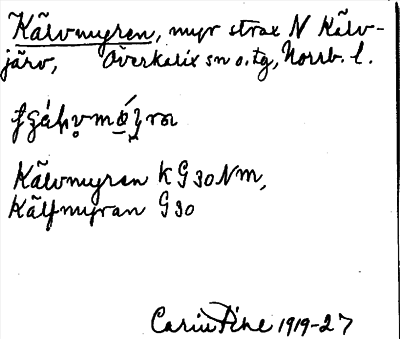 Kälvmyren, myr strax N Kälv-
järv, Överkalix sn o. tg, Norrb. l.
Kälvmyran K G30 Nm,
Kälfmyran G30
Carin Pihl 1919-27